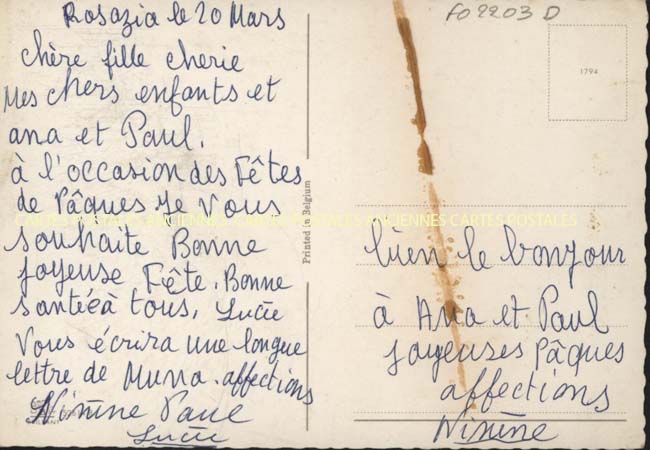 Rosazia le 20 Mars
chère fille cherie
Mes chers enfants et
ana et Paul.
à l'occasion des Fêtes
de Pâques Je Vous
souhaite Bonne
joyeuse Fête. Bonne
santéé à tous. Lucie
Vous écrira une longue
lettre de Munna. affections
Ninine Paul
Lucie
FO 2203 D
1794
Printed in Belgium
CARTES POSTALES ANCIENNES CARTES POSTALES ANCIENNES CARTES POSTALES
bien le bonjour
à Ana et Paul
joyeuses Pâques
affections
Ninine